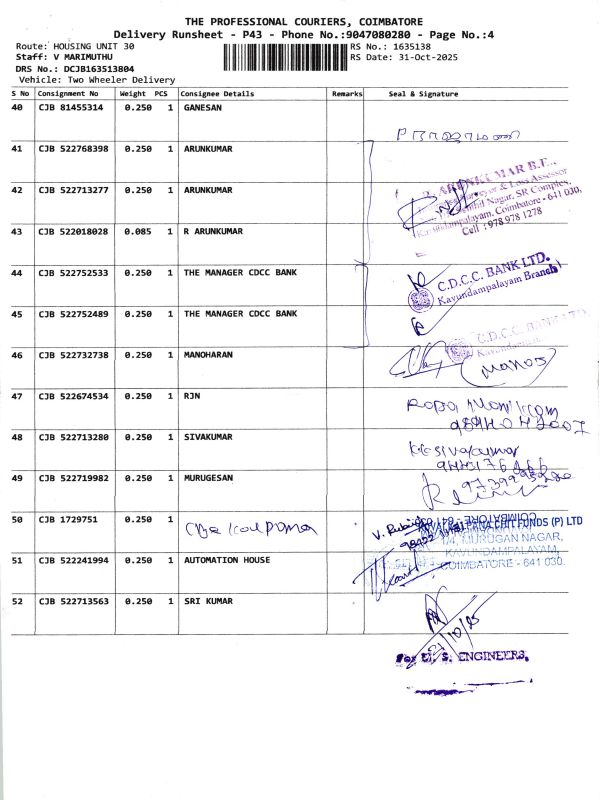 THE PROFESSIONAL COURIERS, COIMBATORE
Delivery Runsheet - P43 - Phone No.:9047080280 - Page No.:4
Route: HOUSING UNIT 30
RS No.: 1635138
Staff: V MARIMUTHU
RS Date: 31-Oct-2025
DRS No.: DCJB163513804
Vehicle: Two Wheeler Delivery
S No Consignment No Weight PCS Consignee Details Remarks Seal & Signature
40 CJB 81455314 0.250 1 GANESAN
41 CJB 522768398 0.250 1 ARUNKUMAR
ARUNKUMAR B.E.,
Surveyor & Loss Assessor
Nagar, SR Complex,
Kavundampalayam, Coimbatore - 641 030,
Cell : 978 978 1278
42 CJB 522713277 0.250 1 ARUNKUMAR
43 CJB 522018028 0.085 1 R ARUNKUMAR
44 CJB 522752533 0.250 1 THE MANAGER CDCC BANK
C.D.C.C. BANK LTD.
Kavundampalayam Branch
45 CJB 522752489 0.250 1 THE MANAGER CDCC BANK
C.D.C.C. BANK LTD.
46 CJB 522732738 0.250 1 MANOHARAN
47 CJB 522674534 0.250 1 RJN
48 CJB 522713280 0.250 1 SIVAKUMAR
49 CJB 522719982 0.250 1 MURUGESAN
50 CJB 1729751 0.250 1
CHIT FUNDS (P) LTD
MURUGAN NAGAR,
KAVUNDAMPALAYAM,
COIMBATORE - 641 030.
51 CJB 522241994 0.250 1 AUTOMATION HOUSE
52 CJB 522713563 0.250 1 SRI KUMAR
ENGINEERS,